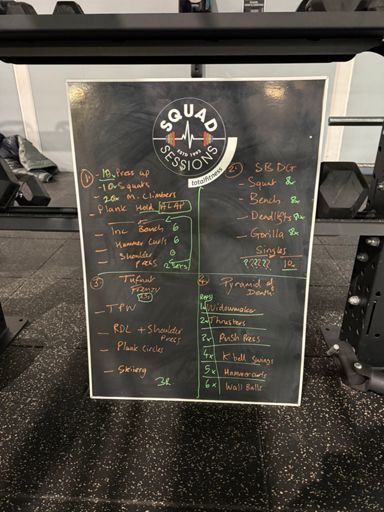 SQUAD
ESTD 1993
SESSIONS
totalfitness
①
- 10 Press up
- 10 Squats
- 20x M. Climbers
- Plank Hold ALAP
- Inc Bench 6
- Hammer Curls 6
- Shoulder Press 6
2 Sets
② SBDG
- Squat 8x
- Bench 8x
- Deadlifts 8x
- Gorilla 8x
Singles
????? 12
③
Frenzy
- TPW
- RDL + Shoulder Press
- Plank Circles
- Skierg
3R
④ Pyramid of Death
Reps
1x Widowmaker
2x Thrusters
3x Push Press
4x K bell Swings
5x Hammer curls
6x Wall Balls